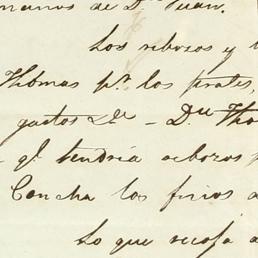 manos de Dn. Juan.
Los rebozos y
Thomas pr. los fletes,
gastos &c. - Dn. Tho
qe. tendría rebozos
Concha los finos
Lo que recoja a